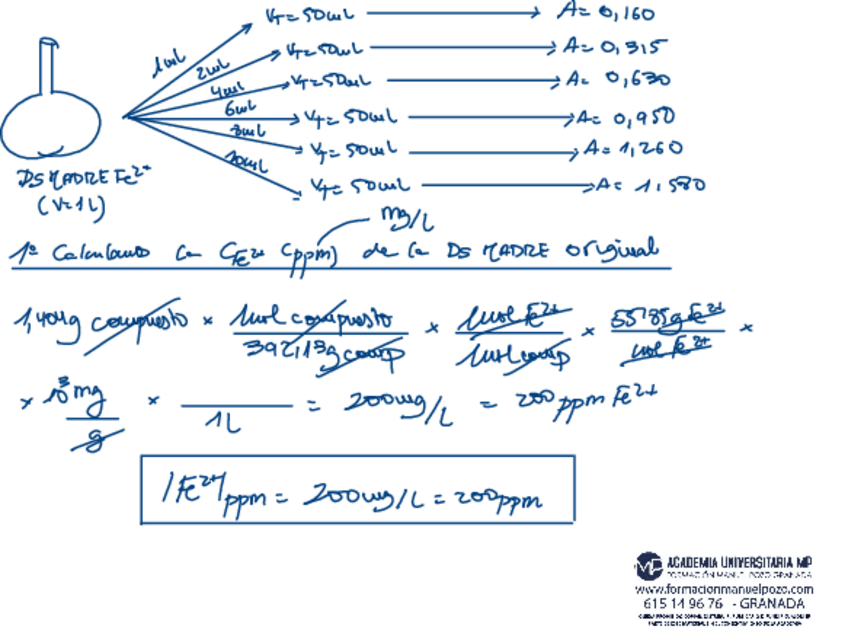 1mL V_T = 50mL → A = 0,160
2mL V_T = 50mL → A = 0,315
4mL V_T = 50mL → A = 0,630
6mL V_T = 50mL → A = 0,950
8mL V_T = 50mL → A = 1,260
10mL V_T = 50mL → A = 1.580
DS MADRE Fe²⁺
(V=1L)
mg/L
1º Calculamos la C_Fe²⁺ (ppm) de la DS MADRE original
1,404g compuesto × 1mol compuesto / 392,13g comp × 1mol Fe²⁺ / 1mol comp × 55'85g Fe²⁺ / mol Fe²⁺ ×
× 10³ mg / g × / 1L = 200mg/L = 200ppm Fe²⁺
|Fe²⁺|ppm = 200mg/L = 200ppm
MP ACADEMIA UNIVERSITARIA MP
FORMACIÓN MANUEL POZO GRANADA
www.formacionmanuelpozo.com
615 14 96 76 - GRANADA